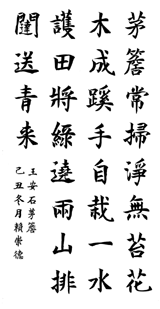 茅簷常掃淨無苔花
木成蹊手自栽一水
護田將綠遶兩山排
闥送青来
王安石茅簷
己丑冬月賴崇德